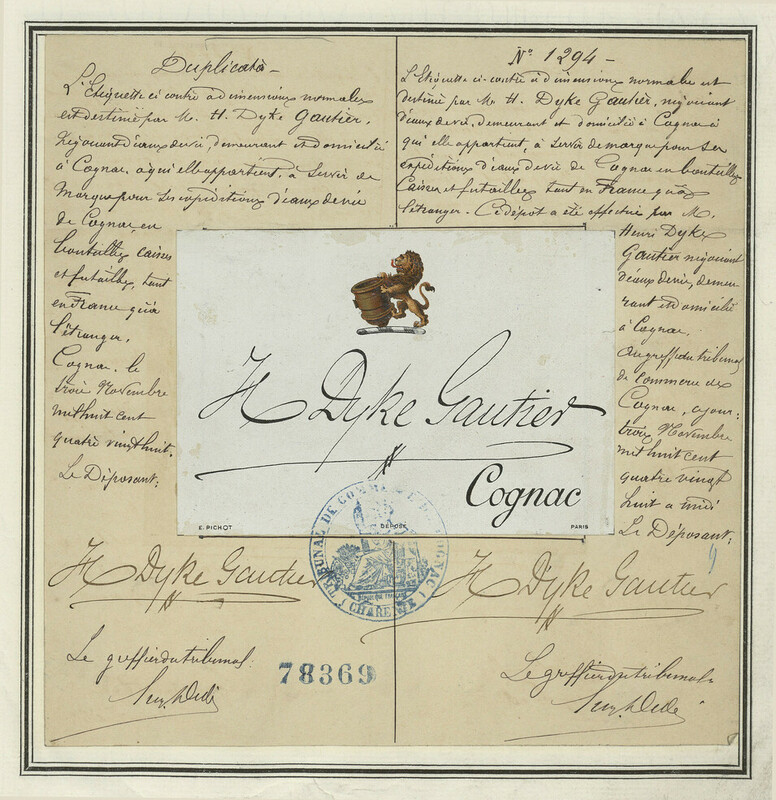 Duplicata -
L'Etiquette ci contre a dimensions normales
est destinée par M. H. Dyke Gautier,
Négociant d'eaux de vie, demeurant et domicilié
à Cognac, à qui elle appartient, à servir de
Marque pour ses expéditions d'eaux de vie
de Cognac en
bouteilles caisses
et futailles, tant
en France qu'à
l'étranger.
Cognac, le
trois Novembre
mil huit cent
quatre vingt huit.
Le Déposant:
H Dyke Gautier
Le greffier du tribunal:
78369
N° 1294 -
L'Etiquette ci-contre à dimensions normales est
destinée par M. H. Dyke Gautier, négociant
d'eaux de vie, demeurant et domicilié à Cognac à
qui elle appartient, à servir de marque pour ses
expéditions d'eaux de vie de Cognac en bouteilles
Caisses et futailles tant en France qu'à
l'étranger. Ce dépot a été effectué par M.
Henri Dyke
Gautier négociant
d'eaux de vie, demeu
rant et domicilié
à Cognac.
Au greffe du tribunal
de Commerce de
Cognac, ce jour:
trois Novembre
mil huit cent
quatre vingt
huit à midi
Le Déposant:
H Dyke Gautier
Le greffier du tribunal
H Dyke Gautier
Cognac
E. PICHOT
DÉPOSÉ
PARIS
TRIBUNAL DE COMMERCE DE COGNAC
RÉPUBLIQUE FRANÇAISE
(CHARENTE)